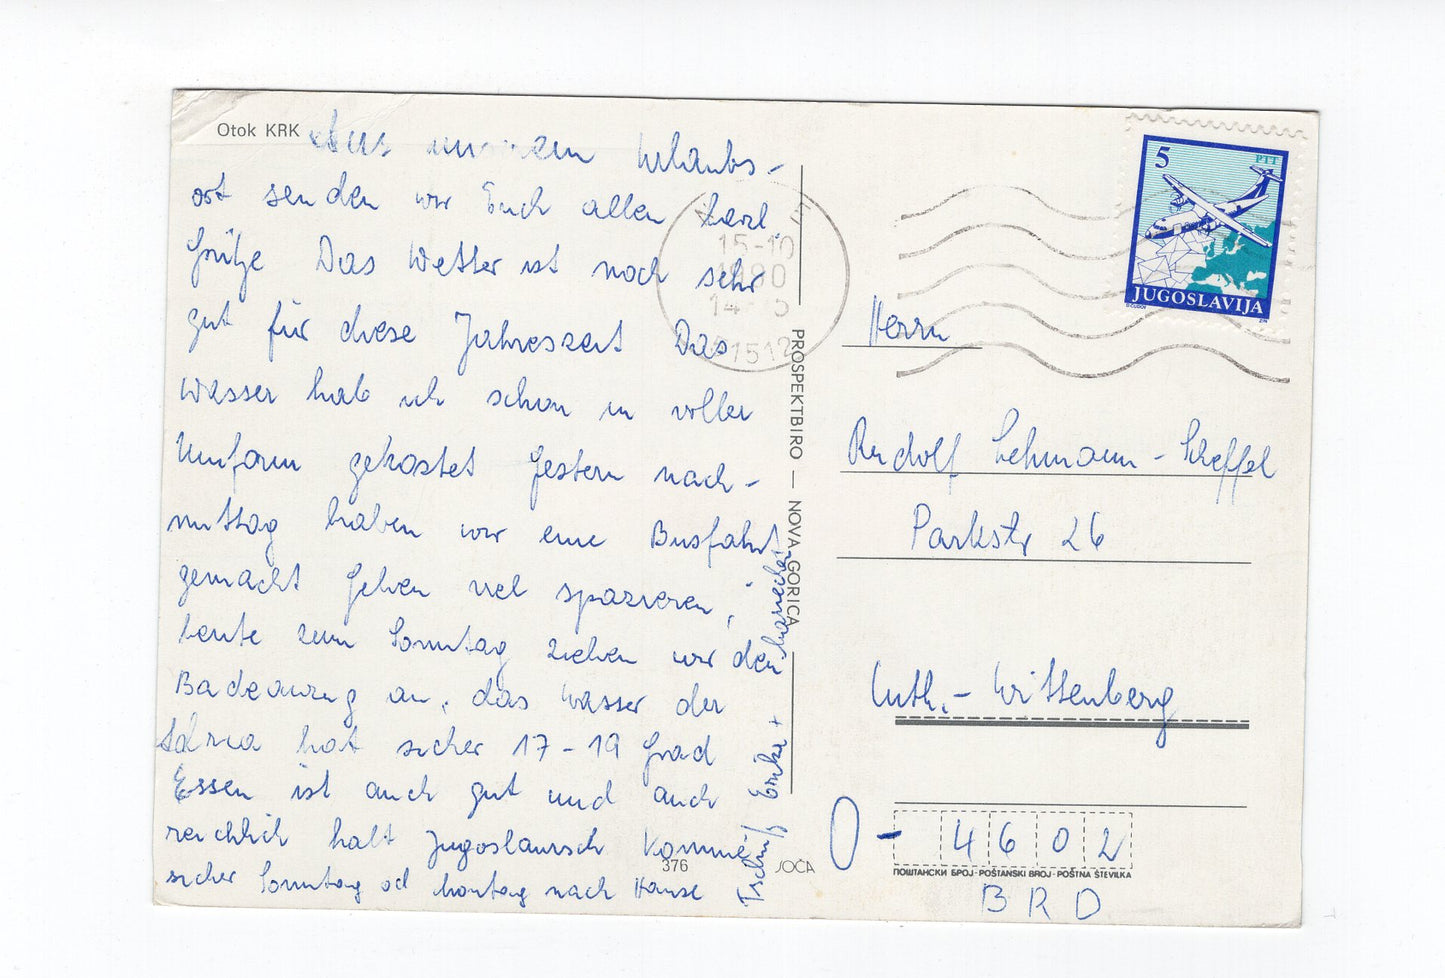 Otok KRK
Aus unserem Urlaubs-
ort senden wir Euch allen herzl.
Grüße Das Wetter ist noch sehr
gut für diese Jahreszeit Das
Wasser hab ich schon in voller
Uniform gekostet Gestern nach-
mittag haben wir eine Busfahrt
gemacht Gehen viel spazieren,
heute zum Sonntag ziehen wir den
Badeanzug an, das Wasser der
Adria hat sicher 17-19 Grad
Essen ist auch gut und auch
reichlich halt Jugoslawisch Komme
sicher Sonntag od Montag nach Hause
Tschüß Erika +
376
SOČA
PROSPEKTBIRO — NOVA GORICA
15-10
1990
1512
5
PTT
JUGOSLAVIJA
Herrn
Rudolf Lehmann-Scheffel
Parkstr 26
Luth.-Wittenberg
O- 4602
ПОШТАНСКИ БРОЈ-POŠTANSKI BROJ-POŠTNA ŠTEVILKA
BRD